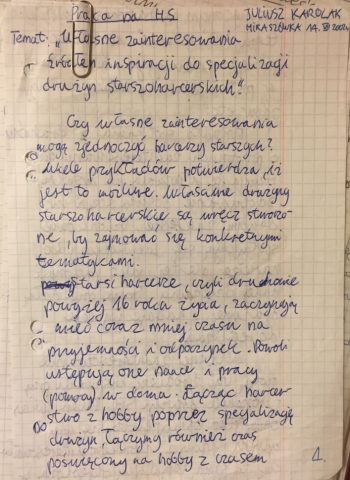 Praca na HS
JULIUSZ KAROLAK
MIKASZEWKA 14.VII 2002
Temat: „Własne zainteresowania
źródłem inspiracji do specjalizacji
drużyn starszoharcerskich.”
Czy własne zainteresowania
mogą zjednoczyć harcerzy starszych?
Wiele przykładów potwierdza, iż
jest to możliwe. Właśnie drużyny
starszoharcerskie są wręcz stworzo-
ne, by zajmować się konkretnymi
tematykami.
Starsi harcerze, czyli druhowie
powyżej 16 roku życia, zaczynają
mieć coraz mniej czasu na
przyjemności i odpoczynek. Powoli
ustępują one nauce i pracy
(pomocy) w domu. Łącząc harcer-
stwo z hobby poprzez specjalizację
drużyn, łączymy również czas
poświęcony na hobby z czasem
1.